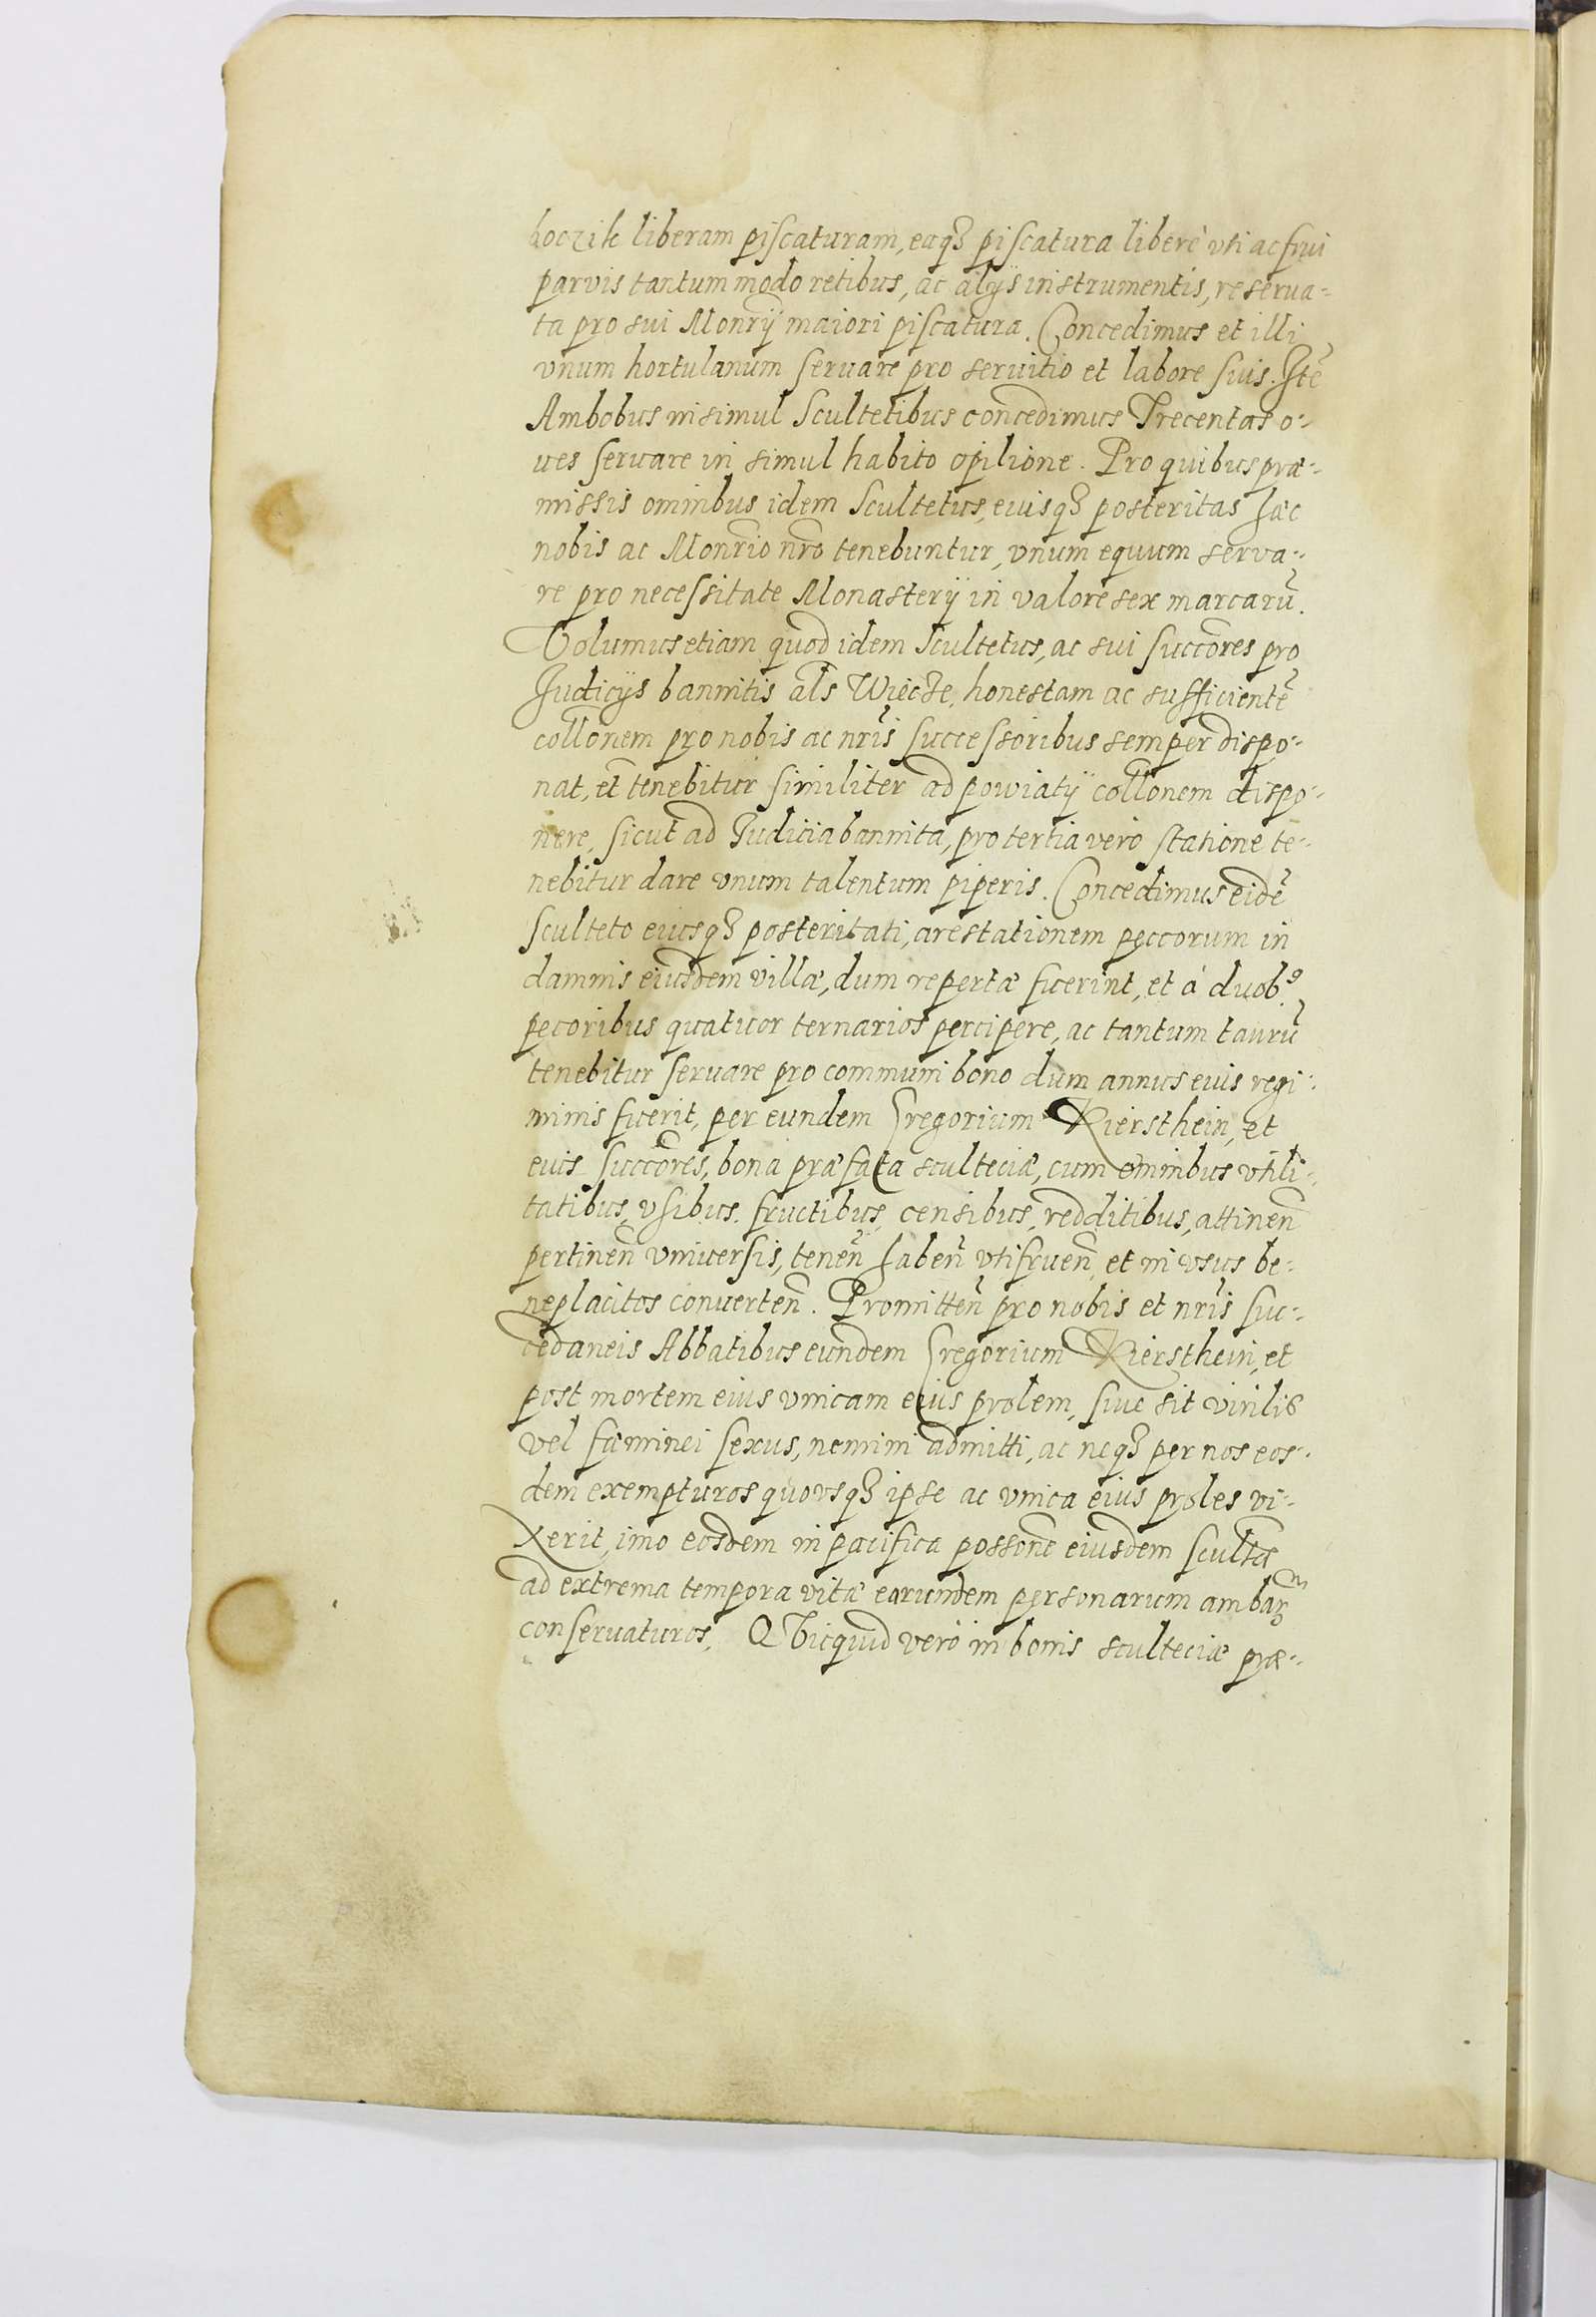 hoczik liberam piscaturam, eaqȝ piscatura liberè vti ac frui
parvis tantummodo retibus, ac alijs instrumentis, reserua-
ta pro sui Monrij maiori piscatura. Concedimus et illi
vnum hortulanum seruare pro seruitio et labore suis. Itē
Ambobus insimul Scultetibus concedimus Trecentas o-
ues seruare in simul habito opilione. Pro quibus præ-
missis omnibus idem Scultetus, eiusqȝ posteritas hæc
nobis ac Monrio nrō tenebuntur, vnum equum serva-
re pro necessitate Monasterij in valore sex marcarū.
Volumus etiam quod idem Scultetus, ac sui succōres pro
Iudicijs bannitis als Wiecze, honestam ac sufficientē
collōnem pro nobis ac nrīs successoribus semper dispo-
nat, et tenebitur similiter ad powiatij collōnem dispo-
nere, sicut ad Iudicia bannita, pro tertia verò statione te-
nebitur dare vnum talentum piperis. Concedimus eidē
sculteto eiusqȝ posteritati, arestationem peccorum in
damnis eiusdem villæ, dum repertæ fuerint, et à duobꝰ
pecoribus quatuor ternarios percipere, ac tantum taurū
tenebitur seruare pro communi bono dum annus eius regi-
minis fuerit, per eundem Gregorium Kiersthein, et
euis succōres, bona præfata sculteciæ, cum omnibus vtili-
tatibus, vsibus, fructibus, censibus, redditibus, attineñ
pertineñ vniuersis, teneñ habeñ vtifrueñ et in vsus be-
neplacitos conuerteñ. Promitteñ pro nobis et nrīs suc-
cedaneis Abbatibus eundem Gregorium Kiersthein, et
post mortem eius vnicam eius prolem, siue sit virilis
vel fæminei sexus, nemini admitti, ac neqȝ per nos eos-
dem exempturos quovsqȝ ipse ac vnica eius proles vi-
xerit, imo eosdem in pacifica possōne eiusdem scultæ
ad extrema tempora vitæ earundem personarum ambarꝝ
conseruaturos. QVicquid verò in bonis sculteciæ præ-